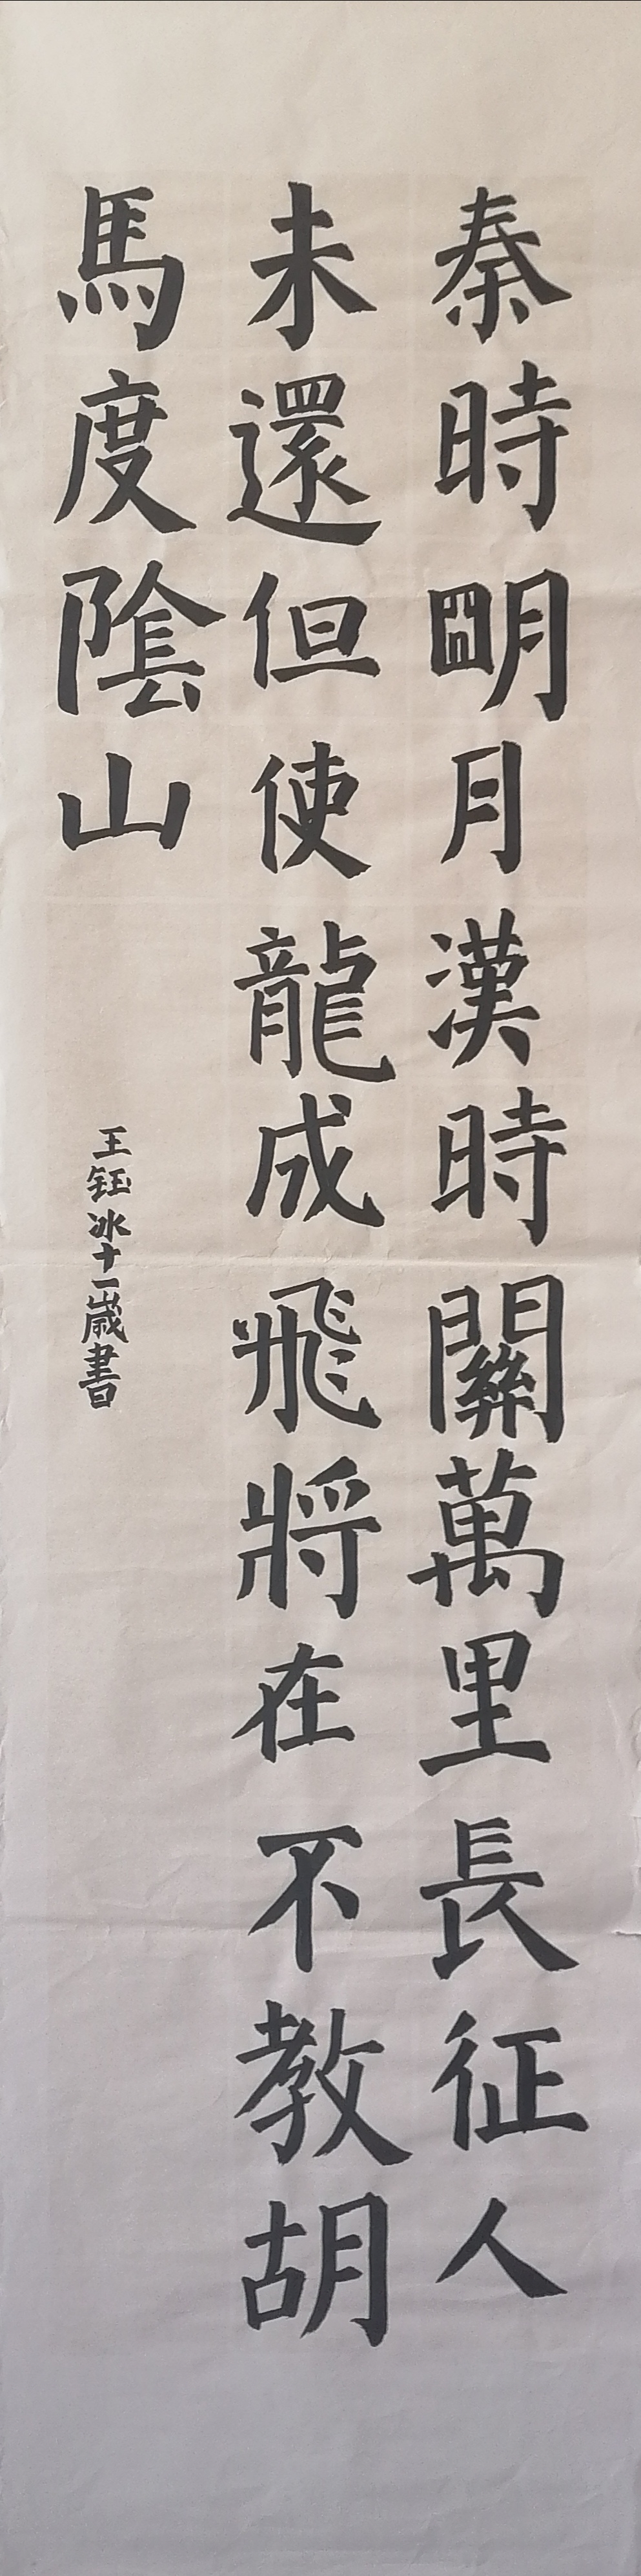 秦時明月漢時關萬里長征人
未還但使龍成飛將在不教胡
馬度陰山
王钰冰十一歲書